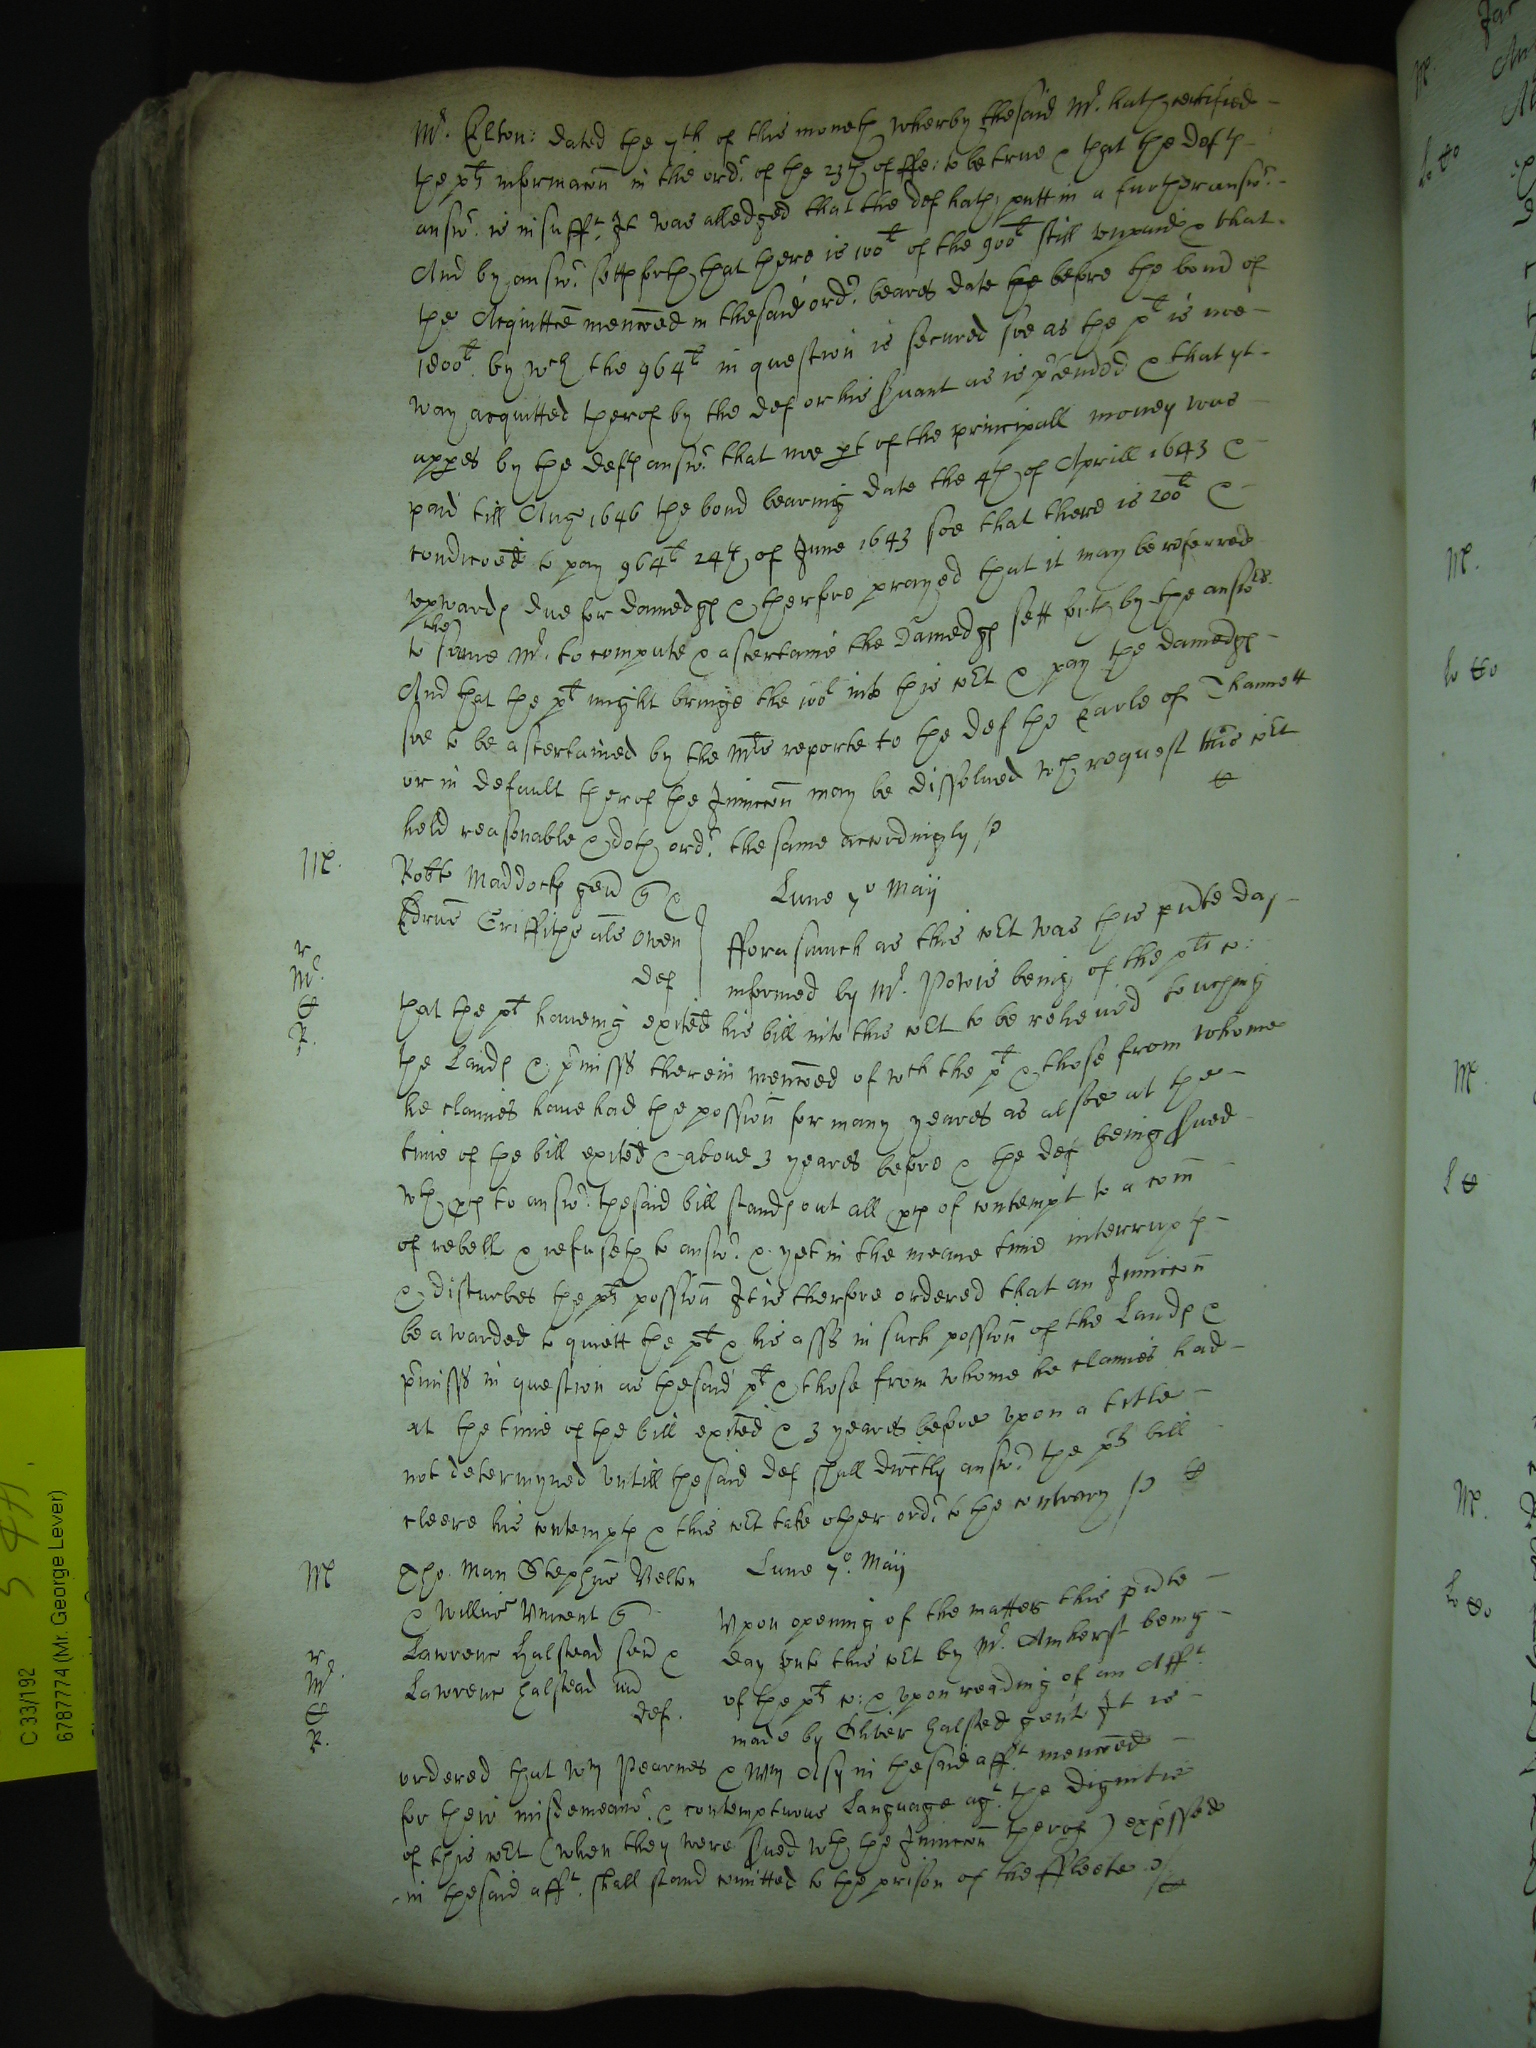 Mr. Elton: dated the 7th of this moneth wherby the said Mr. hath certified
the plts informacon in the ordr. of the 23th of ffe: to be true & that the defts
answr. is insufft. It was alledged that the def hath putt in a further answr.
And by answr. setts forth that there is 100l of the 900l still unpaid & that
the Acquittce menconed in the said ordr. beares date the before the bond of
1800l. by wch the 964l in question is secured soe as the plt is noe
way acquitted therof by the def or his servant as is prtended & that yt
appes by the defts answr. that noe pt of the principall money was
paid till Aug 1646 the bond bearing date the 4th of Aprill 1643 &
condiconed to pay 964l 24th of June 1643 soe that there is 200l &
upwards due for damedges & therfore prayed that it may be referred
to the same Mr. to compute & ascertaine the damedges sett forth by the answrs.
And that the plt might bringe the 100l into this cort & pay the damedges
soe to be ascertained by the Mrs reporte to the def the Earle of Thannett
or in default therof the Iniuncon may be dissolued wch request this cort
held reasonable & doth ordr. the same accordingly
Robte Maddocks gen q &
Edrus Griffithe als Owen
def
Lune 7o Maij
fforasmuch as this cort was this prnte day
informed by Mr. Powis being of the plts co:
that the plt haueing exited his bill into this cort to be relieued touching
the Lands & prmisss therein menconed of wch the plt & those from whome
he claimes haue had the possion for many yeares as alsoe at the
time of the bill exited & aboue 3 yeares before & the def being serued
wth prs to answr. the said bill stands out all prs of contempt to a com
of rebell & refuseth to answr. & yet in the meane time interrupts
& disturbes the plts possion It is therfore ordered that an Iniuncon
be awarded to quiett the plt & his asss in such possion of the Lands &
prmisss in question as the said plt & those from whome he claimes had
at the time of the bill exited & 3 yeares before upon a title
not determyned untill the said def shall directly answr. the plts bill
cleere his contempts & this cort take other ordr. to the contrary
Tho. Man Stephus Velton
& Willus Vincent q
Lawrence Halstead sen &
Lawrence Halstead iun
def.
Lune 7o. Maij
Upon opening of the matter this prnte
day unto this cort by Mr. Amherst being
of the plts co: & upon reading of an Afft.
made by Oliver Halsted gent It is
ordered that Wm Pearnes & Wm Asy in the said afft. menconed
for their misdemeanr. & contemptuous Language agt. the dignitie
of this cort (when they were serued wth the Iniuncon therof) exprssed
in the said afft. shall stand comitted to the prison of the ffleete
C 33/192
6787774 (Mr. George Lever)